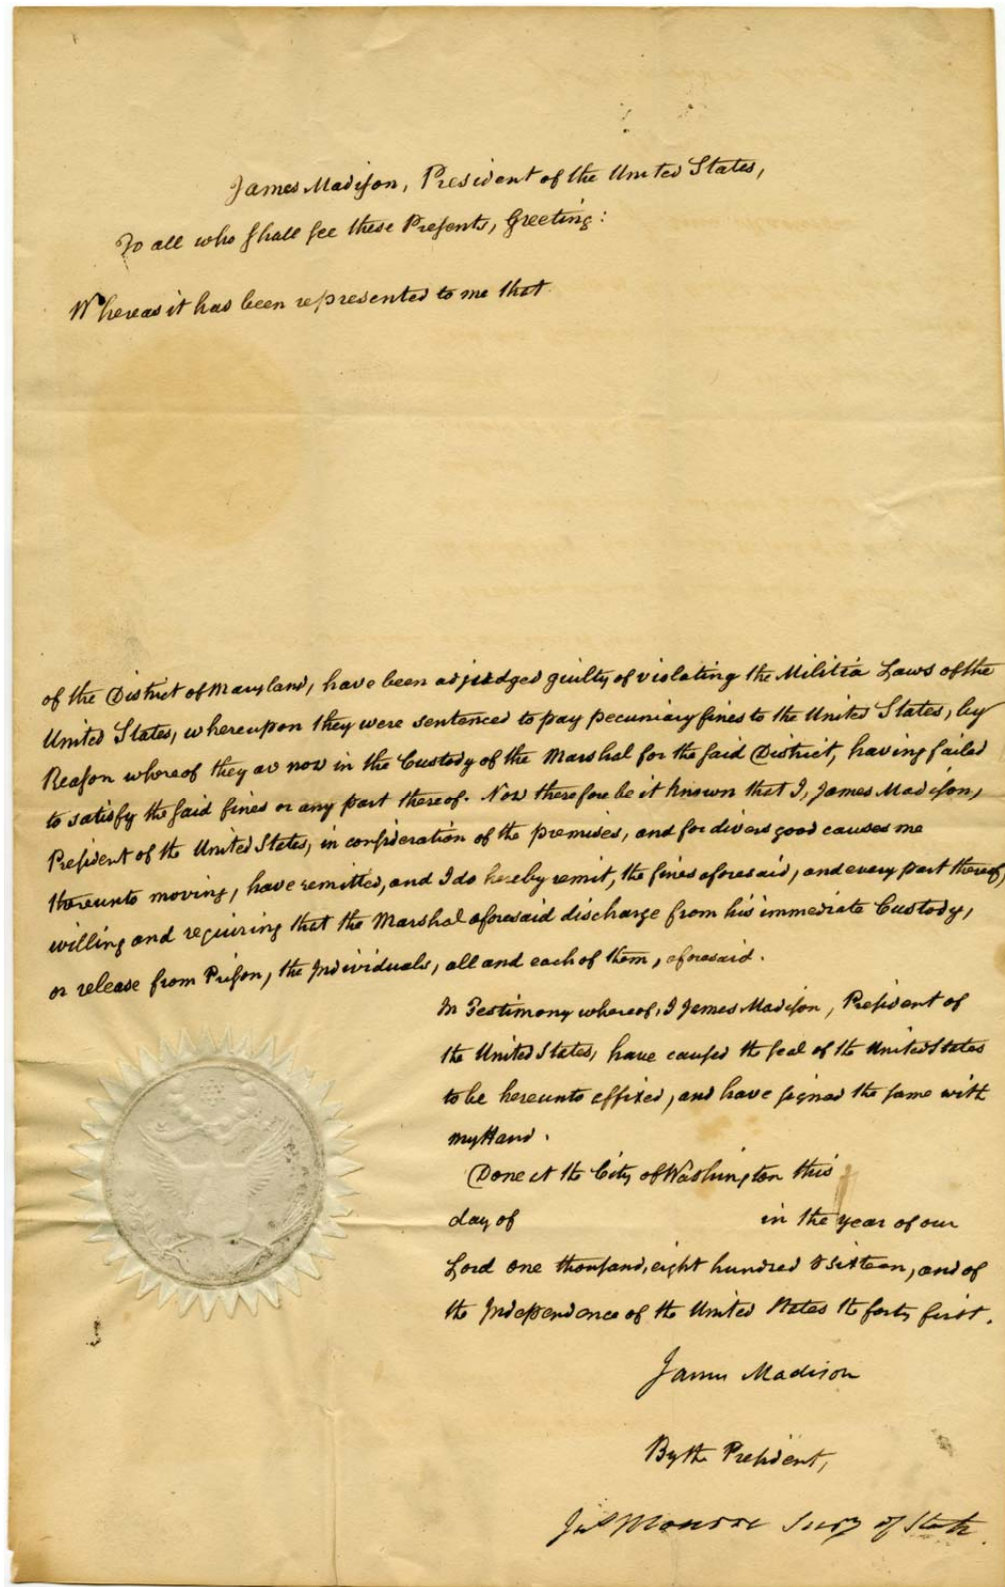 James Madison, President of the United States,
To all who shall see these Presents, Greeting:
Whereas it has been represented to me that
of the District of Maryland, have been adjudged guilty of violating the Militia Laws of the
United States, whereupon they were sentenced to pay pecuniary fines to the United States, by
Reason whereof they ar now in the Custody of the Marshal for the said District, having failed
to satisfy the said fines or any part thereof. Now therefore be it known that I, James Madison,
President of the United States, in consideration of the premises, and for divers good causes me
thereunto moving, have remitted, and I do hereby remit, the fines aforesaid, and every part thereof,
willing and requiring that the Marshal aforesaid discharge from his immediate Custody,
or release from Prison, the Individuals, all and each of them, aforesaid.
In Testimony whereof, I James Madison, President of
the United States, have caused the seal of the United States
to be hereunto affixed, and have signed the same with
my Hand.
Done at the City of Washington this
day of in the year of our
Lord one thousand, eight hundred & sixteen, and of
the Independence of the United States the forty first.
James Madison
By the President,
Jas Monroe Secy of State